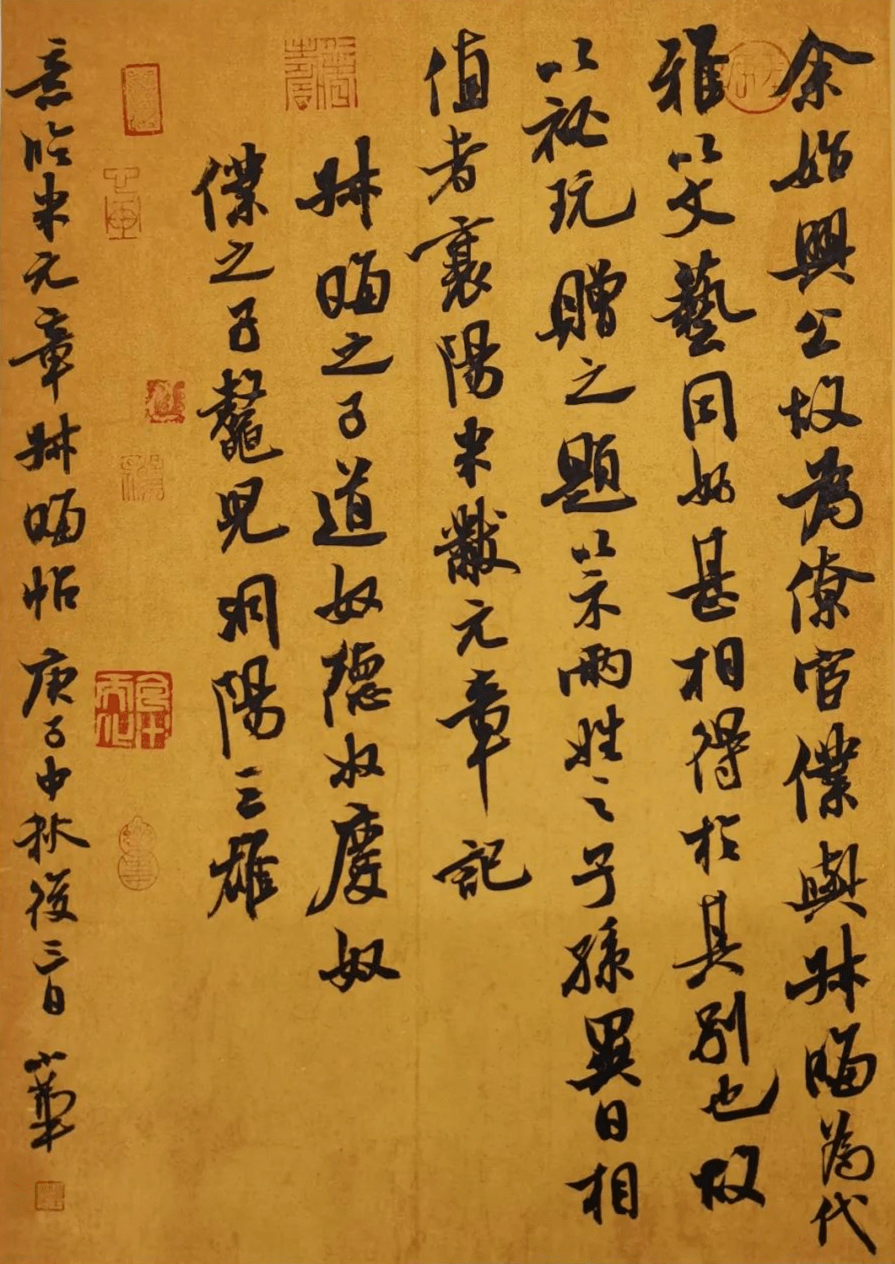 余始興公故為僚宦僕與叔晦為代
雅以文藝同好甚相得於其別也故
以祕玩贈之題以示兩姓之子孫異日相
值者襄陽米黻元章記
叔晦之子道奴德奴慶奴
僕之子鼇兒洞陽三雄
意臨米元章叔晦帖庚子中秋後三日